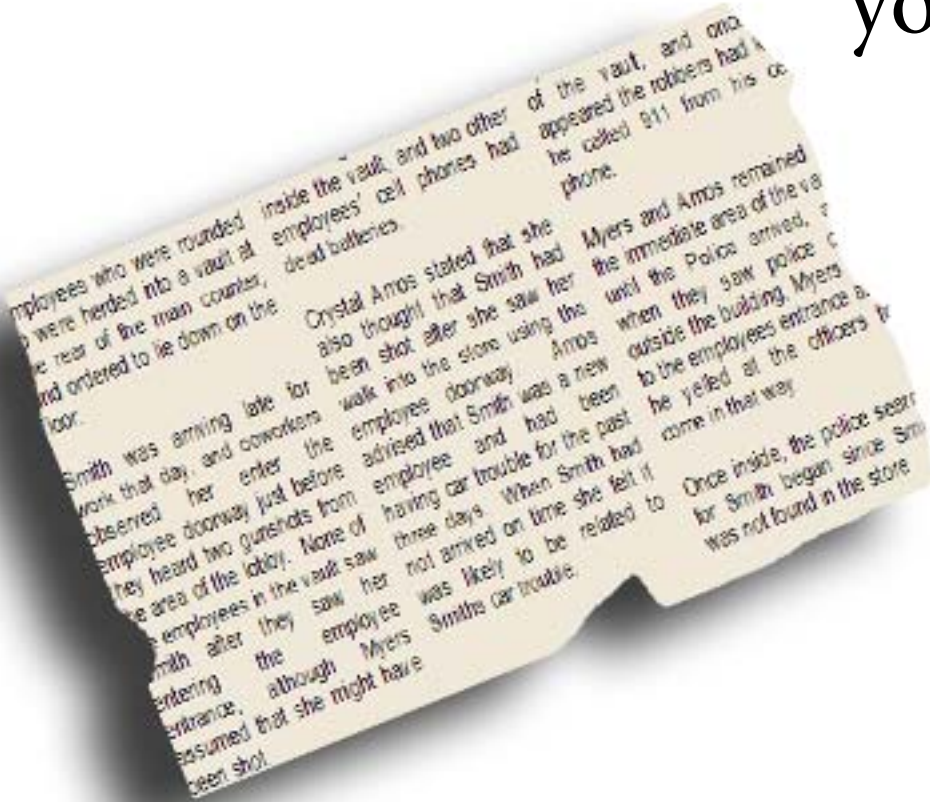 yo
mployees who were rounded
were herded into a vault at
e rear of the main counter,
nd ordered to lie down on the
loor.
Smith was arriving late for
work that day, and coworkers
observed her enter the
employee doorway just before
they heard two gunshots from
e area of the lobby. None of
e employees in the vault saw
mith after they saw her
entering the employee
entrance, although Myers
assumed that she might have
been shot
inside the vault, and two other
employees' cell phones had
dead batteries.
Crystal Amos stated that she
also thought that Smith had
been shot after she saw her
walk into the store using the
employee doorway. Amos
advised that Smith was a new
employee and had been
having car trouble for the past
three days. When Smith had
not arrived on time she felt it
was likely to be related to
Smiths car trouble.
of the vault, and once
appeared the robbers had
he called 911 from his ce
phone.
Myers and Amos remained
the immediate area of the va
until the Police arrived,
when they saw police
outside the building, Myers
to the employees entrance a
he yelled at the officers
come in that way.
Once inside, the police sear
for Smith began since Smi
was not found in the store